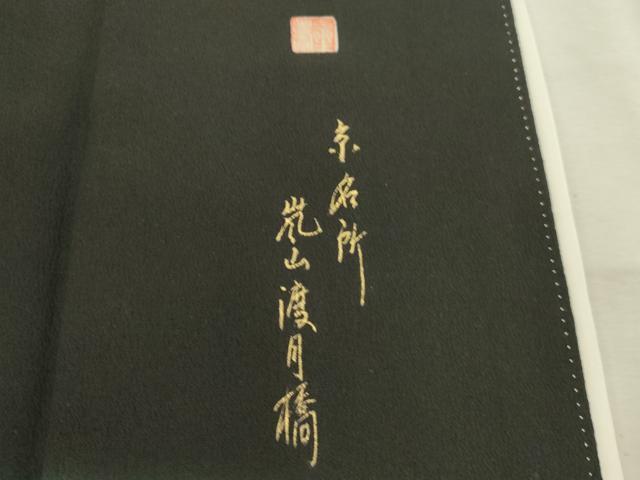 京名所
嵐山渡月橋